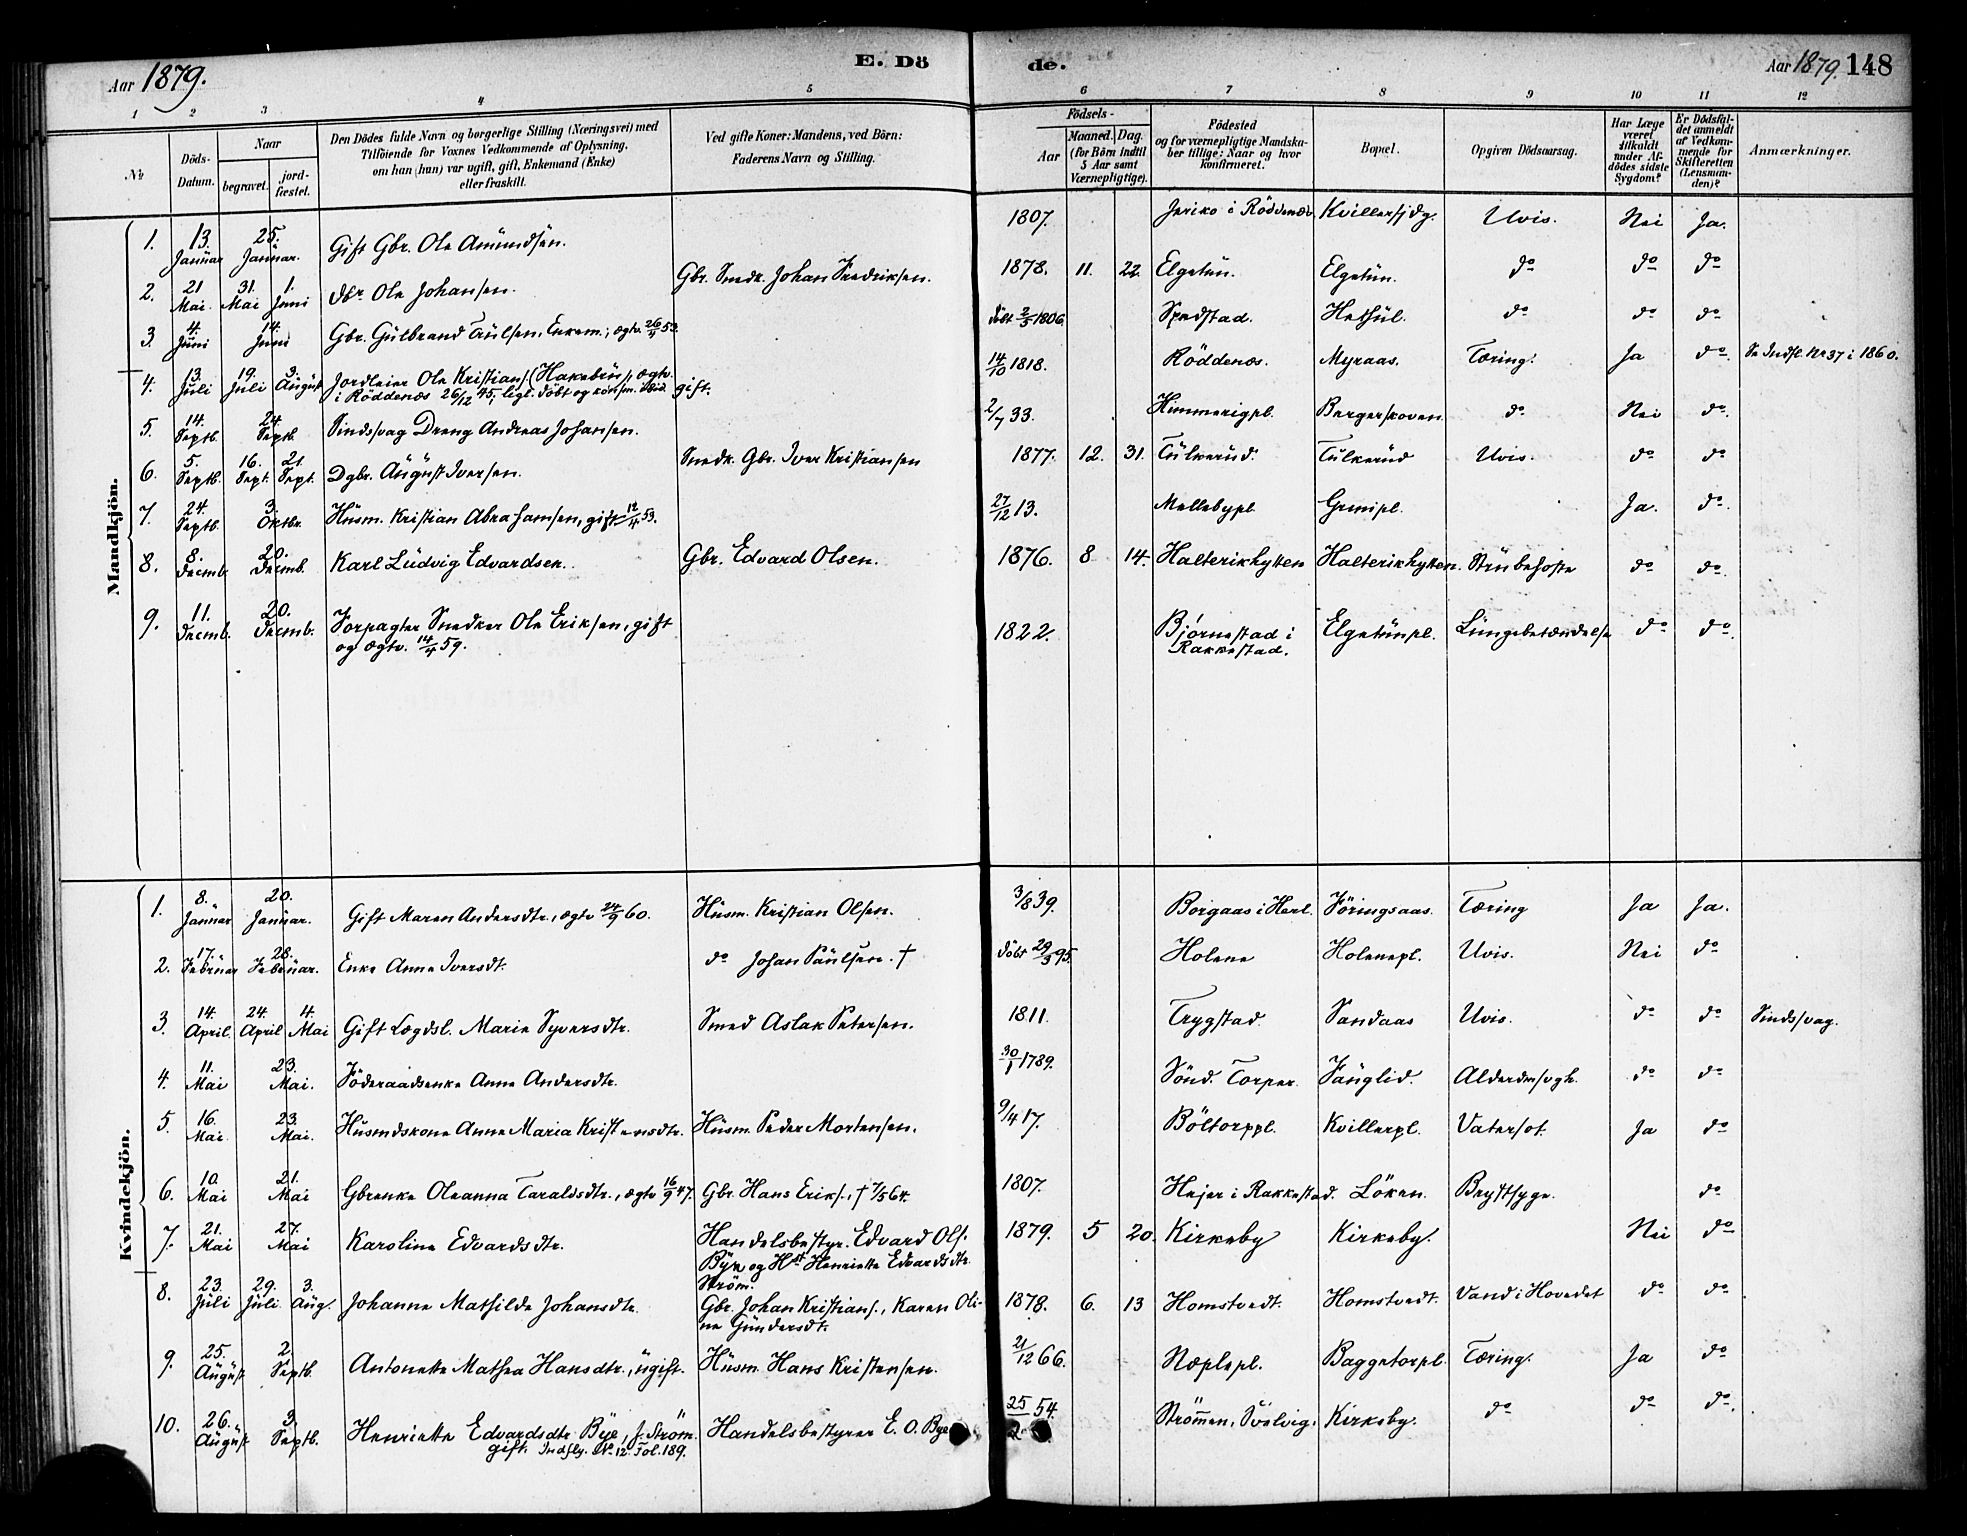 Aar 1879. E. Döde. Aar 1879. 148
1 2 3 4 5 6 7 8 9 10 11 12
No
Döds-Datum.
Naar begravet. jordfæstet.
Den Dödes fulde Navn og borgerlige Stilling (Næringsvei) med Tilföiende for Voxnes Vedkommende af Oplysning, om han (hun) var ugift, gift, Enkemand (Enke) eller fraskilt.
Ved gifte Koner: Mandens, ved Börn: Faderens Navn og Stilling.
Födsels- Aar Maaned. Dag. (for Börn indtil 5 Aar samt Værnepligtige).
Födested og for værnepligtige Mandskaber tillige: Naar og hvor konfirmeret.
Bopæl.
Opgiven Dödsaarsag.
Har Læge været tilkaldt under Afdödes sidste Sygdom?
Er Dödsfaldet anmeldt af Vedkommende for Skifteretten (Lensmanden)?
Anmærkninger.
Mandkjön.
1. 13. Januar 25. Januar. Gift Gbr. Ole Amundsen. 1807. Jeriko i Röddenæs Uvis. Nei Ja.
2. 21 Mai. 31. Mai 1. Juni Ole Johansen. Gbr. Smedk. Johan Fredriksen. 1878. 11. 22. Elgetun. Elgetun. do do do
3. 4. Juni 14. Juni Gbr. Gulbrand Trulsen, Enkem., ægtv. 26/4 53. döbt 2/3 1806. Spedstad. Hethul. do do do
4. 13. Juli 19. Juli 3. August Jordleier Ole Kristians. (Hakebru), ægtv. i Röddenæs 26/12 45, legl. döbt og konfirm. ibid. gift. 14/10 1818. Röddenæs. Myraas. Tæring. Ja do Se Indfl. Nr 37 i 1860.
5. 14. Septb. 24. Septb. Sindssvag Dreng Andreas Johansen. 2/7 33. Himmerigpl. Bergerskoven. do Nei do
6. 5. Septb. 16. Sept. 21. Sept. Dgbr. August Iversen. Smedk. Gbr. Iver Kristiansen 1877. 12. 31. Tulkerud. Tulkerud Uvis. do do
7. 24. Septb. 3. Oktbr. Husm. Kristian Abrahamsen, gift 12/4 53. 27/12 13. Mellebypl. Grenipl. Ja. do
8. 8. Decemb. 20. Decemb. Karl Ludvig Edvardsen. Gbr. Edvard Olsen. 1876. 8 14. Halterikhytten Halterikhytten. Strubehoste do do
9. 11. Decemb. 20. Decemb. Forpagter Snedker Ole Eriksen, gift og ægtv. 14/4 59. 1822. Bjørnestad i Rakkestad. Elgetunpl. Lungebetændelse do do
Kvindekjön.
1. 8. Januar 20. Januar. Gift Maren Andersdtr., ægtv 24/9 60. Husm. Kristian Olsen. 3/8 39. Borgaas i Herl. Föringsaas. Tæring Ja Ja.
2. 17. Februar 28. Februar. Enke Anne Iversdt. do Johan Paulsen. † döbt 29/3 95. Holene Holenepl. Uvis. Nei do
3. 14. April. 24. April 4. Mai Gift Lægdsl. Marie Syversdtr. Smed Aslak Petersen. 1811. Trygstad. Sandaas Uvis. do do Sindssvag.
4. 11. Mai 23. Mai. Föderaadsenke Anne Andersdtr. 1789. Sönd. Torper. Fanglid. do do
5. 16. Mai 23. Mai. Husmdskone Anne Maria Kristensdtr. Husm. Peder Mortensen. 9/4 17. Böltorppl. Kvillerpl. Vatersot. Ja do
6. 10. Mai 21. Mai Gbrenke Oleanna Taraldsdtr., ægtv 16/9 47. Gbr. Hans Eriks., † 7/5 64. 1807. Hejer i Rakkestad. Löken. Brystsyge. do
7. 21. Mai 27. Mai Karoline Edvardsdtr. Handelsbestyr. Edvard Ols. Bye og Hst Henriette Edvardsdtr. Ström. 1879. 5 20. Kirkeby Kirkeby. Nei do
8. 23. Juli 29. Juli. 3. Aug. Johanne Mathilde Johansdtr. Gbr. Johan Kristians., Karen Oline Gundersdt. 1878. 6. 13 Homstvedt. Homstvedt. Vand i Hovedet do do
9. 25. August 2. Septb. Antonette Mathea Hansdtr., ugift. Husm. Hans Kristensen. 21/12 66. Næplepl. Baggetorpl. Tæring. Ja do
10. 26. August 3. Septb. Henriette Edvardsdtr. Bye, f. Ström. gift. Indfly. No 12 Fol. 189. Handelsbestyrer E. O. Bye 25/2 54. Strömmen, Svelvig. Kirkeby. do do do